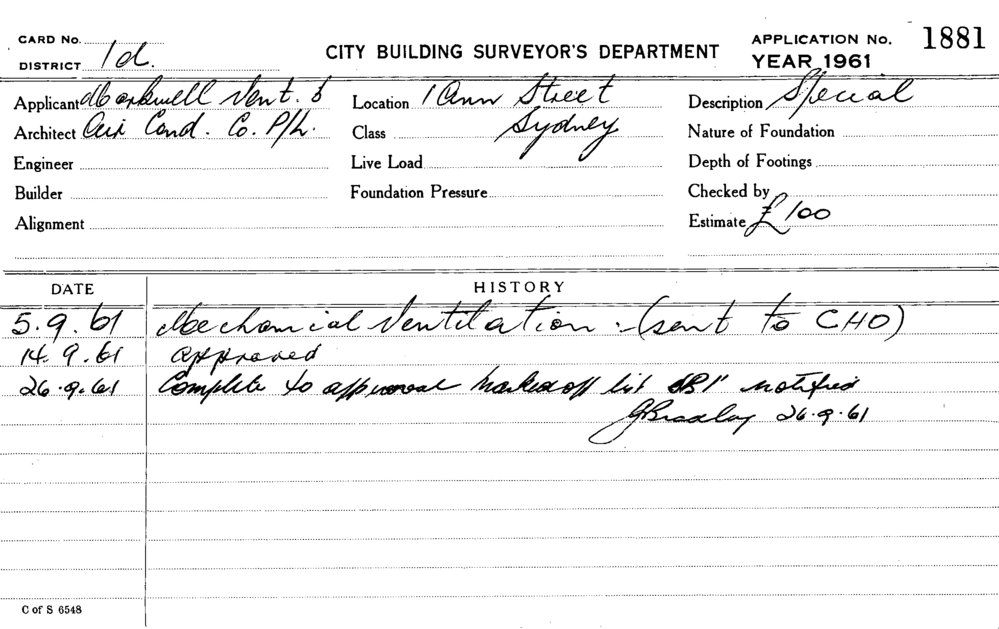 CARD No.
DISTRICT 1d.
CITY BUILDING SURVEYOR'S DEPARTMENT
APPLICATION No. 1881
YEAR 1961
Applicant Markwell Vent. &
Architect Air Cond. Co. P/L.
Engineer
Builder
Alignment
Location 1 Ann Street
Class Sydney
Live Load
Foundation Pressure
Description Special
Nature of Foundation
Depth of Footings
Checked by
Estimate £100
DATE HISTORY
5.9.61 Mechanical Ventilation :- (sent to CHO)
14.9.61 approved
26.9.61 Complete to approval marked off list notified
GBradley 26.9.61
C of S 6548